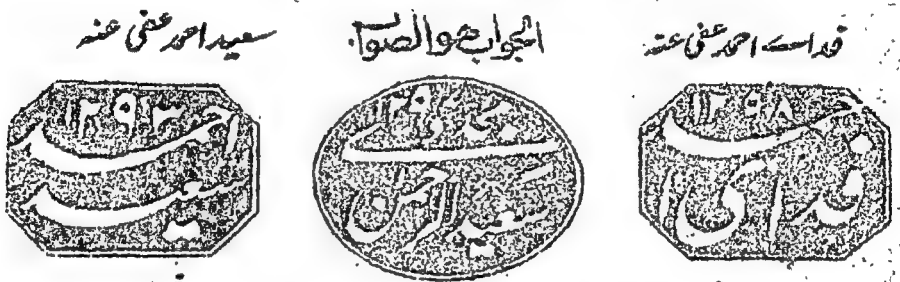 فدائے احمد عفی عنہ
الجواب هو الصواب
سعید احمد عفی عنہ
۱۲۹۸
فدای احمد
۱۲۹
سعید الرحمن
۱۲۹۳
سعید احمد